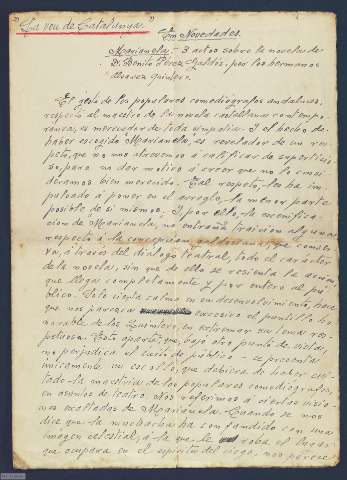 "La Veu de Catalunya"
En Novedades.
Marianela - 3 actos sobre la novela de
D. Benito Pérez Galdós, por los hermanos
Alvarez Quintero.
El gesto de los populares comediógrafos andaluces,
respecto al maestro de la novela castellana contempo-
ránea, es merecedor de toda simpatía. Y el hecho de
haber escogido "Marianela", es revelador de un res-
peto, que no nos atrevemos a calificar de supersticio-
so, para no dar motivo á creer que no lo consi-
deramos bien merecido. Tal respeto, les ha im-
pulsado á poner en el arreglo, la menor parte
posible de sí mismos. Y por ello, la escenifica-
ción de "Marianela", no entraña traición alguna
respecto á la concepción galdosiana que conser-
va, á través del diálogo teatral, todo el carácter
de la novela, sin que de ello se resienta la acción
que llega completamente y por entero al pú-
blico. Solo cierta calma en su desenvolvimiento, hace
que nos parezca excesivo el puntillo ho-
norable de los Quintero, en extremar su tarea res-
petuosa. Esto aparte, que, bajo otro punto de vista,
no perjudica el curso de público - se presenta
únicamente un escollo, que debiera de haber evi-
tado la maestría de los populares comediógrafos,
en asuntos de teatro. Nos referimos á ciertas visio-
nes exaltadas de Marianela. Cuando se nos
dice que la muchacha ha confundido con una
imagen celestial, á la que le roba el lugar
que ocupara en el espíritu del ciego, nos parece